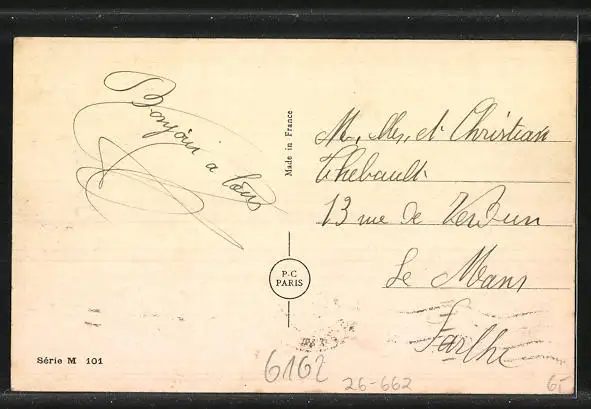 Bonjour a tous
Made in France
M. Me. et Christian
Thebault
13 rue de Verdun
Le Mans
Sarthe
P-C
PARIS
Série M 101
6162
26-662
65